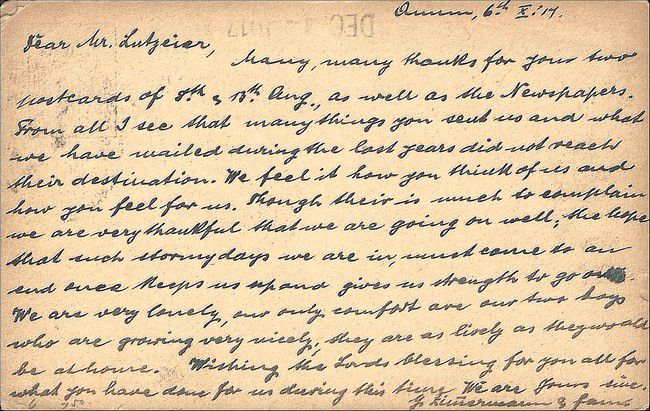 Amm, 6th X. 17.
DEC 3 - 1917
Dear Mr. Lutzeier,
Many, many thanks for your two
postcards of 8th & 13th Aug., as well as the Newspapers.
From all I see that many things you sent us and what
we have mailed during the last years did not reach
their destination. We feel it how you think of us and
how you feel for us. Though their is much to complain
we are very thankful that we are going on well; the hope
that such stormy days we are in, must come to an
end once keeps us up and gives us strength to go on.
We are very lonely, our only comfort are our two boys
who are growing very nicely, they are as lively as they would
be at home. Wishing the Lords blessing for you all for
what you have done for us during this time We are Yours sinc.
G. Zimmermann & fam.